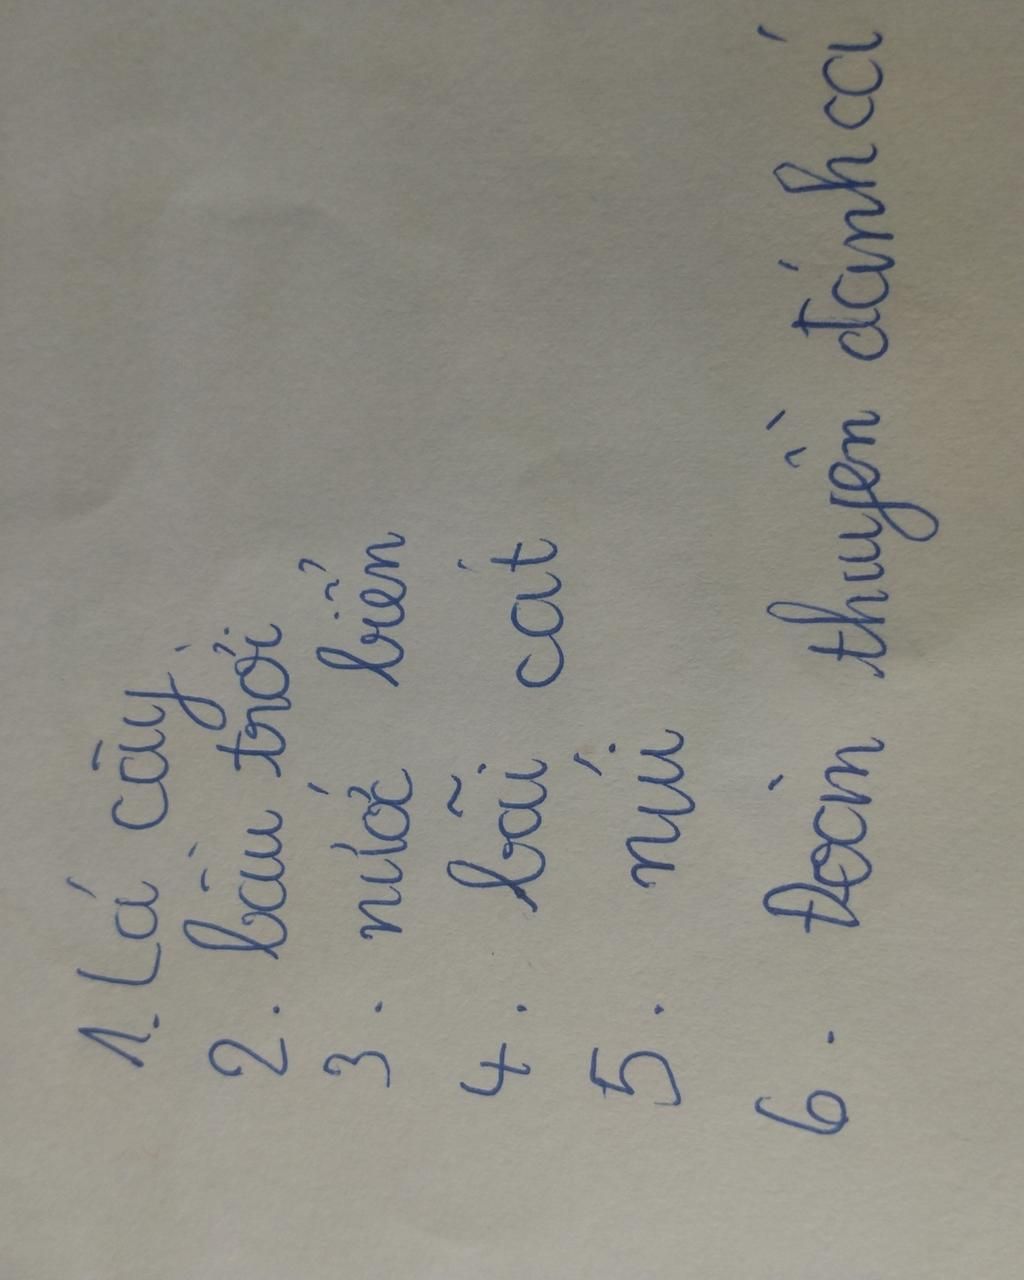 1. Lá cây
2. bầu trời
3. nước biển
4. bãi cát
5. núi
6. Đoàn thuyền đánh cá